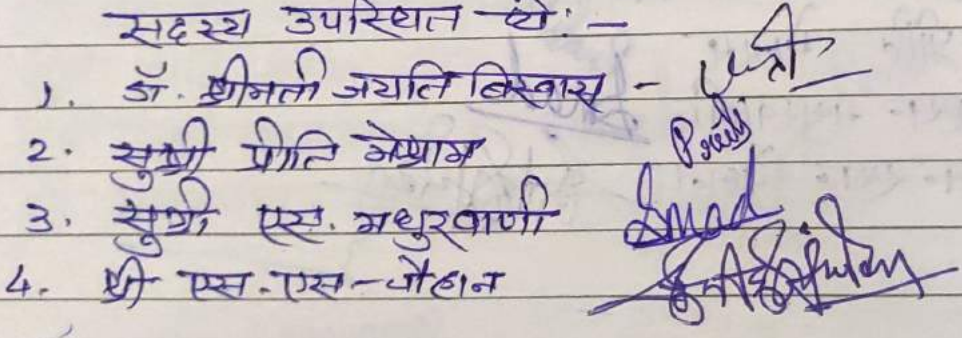 सदस्य उपस्थित थे :-
1. डॉ. श्रीमती जयति बिस्वास -
2. सुश्री प्रीति मेश्राम Preeti
3. सुश्री एस. मधुरवाणी Smad
4. श्री एस.एस-चौहान